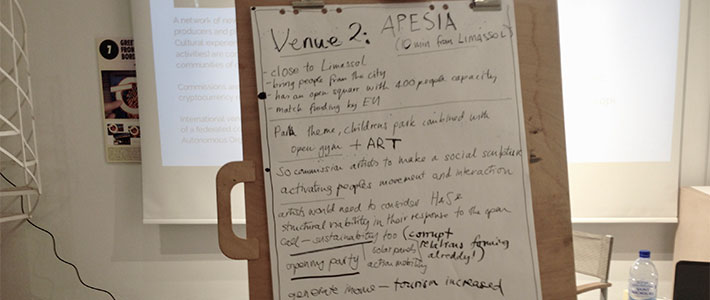 Venue 2: APESIA
(10 min from Limassol)
- close to Limassol
- bring people from the city
- has an open square with 400 people capacity
- match funding by EU
Park theme, children's park combined with
open gym + ART
So commission artists to make a social sculpture
activating peoples movement and interaction
artists would need to consider H&S &
structural viability in their response to the open
call - sustainability too (corrupt
relations forming
already!)
opening party
solar panels
action mobility
generate income - tourism increased
A network of
producers and
Cultural experien
activities) are con
communities of
Commissions are
cryptocurrency
International
of a federated co
Autonomous Or
7
GREE
FROM
BOR